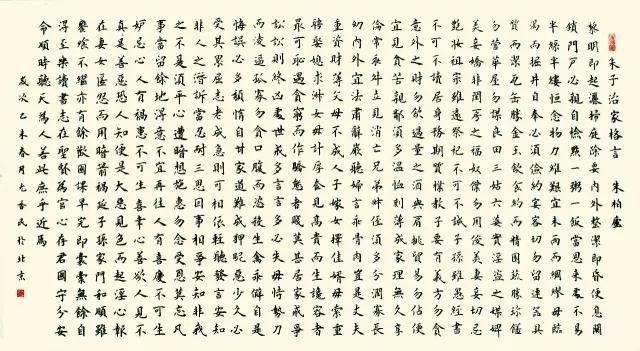 朱子治家格言 朱柏廬
黎明即起灑掃庭除要內外整潔即昏便息關
鎖門戶必親自檢點一粥一飯當思來處不易
半絲半縷恆念物力維艱宜未雨而綢繆毋臨
渴而掘井自奉必須儉約宴客切勿留連器具
質而潔瓦缶勝金玉飲食約而精園蔬勝珍饈
勿營華屋勿謀良田三姑六婆實淫盜之媒婢
美妾嬌非閨房之福奴僕勿用俊美妻妾切忌
艷妝祖宗雖遠祭祀不可不誠子孫雖愚經書
不可不讀居身務期質樸教子要有義方勿貪
意外之財勿飲過量之酒與肩挑貿易勿佔便
宜見貧苦親鄰須多溫恤刻薄成家理無久享
倫常乖舛立見消亡兄弟叔侄須多分潤寡長
幼內外宜法肅辭嚴聽婦言乖骨肉豈是丈夫
重資財薄父母不成人子嫁女擇佳婿毋索重
聘娶媳求淑女毋計厚奩見富貴而生諂容者
最可恥遇貧窮而作驕態者賤莫甚居家戒爭
訟訟則終凶處世戒多言言多必失毋恃勢力
而凌逼孤寡勿貪口腹而恣殺生禽乖僻自是
悔誤必多頹惰自甘家道難成狎昵惡少久必
受其累屈志老成急則可相依輕聽發言安知
非人之譖訴當忍耐三思因事相爭安知非我
之不是須平心遭暗想施惠勿念受恩莫忘凡
事當留餘地得意不宜再往人有喜慶不可生
妒忌心人有禍患不可生喜幸心善欲人見不
真是善惡恐人知便是大惡見色而起淫心報
在妻女匿怨而用暗箭禍延子孫家門和順雖
饔飧不繼亦有餘歡國課早完即囊橐無餘自
得至樂讀書志在聖賢為官心存君國守分安
命順時聽天為人若此庶乎近焉
歲次乙未春月 民於北京